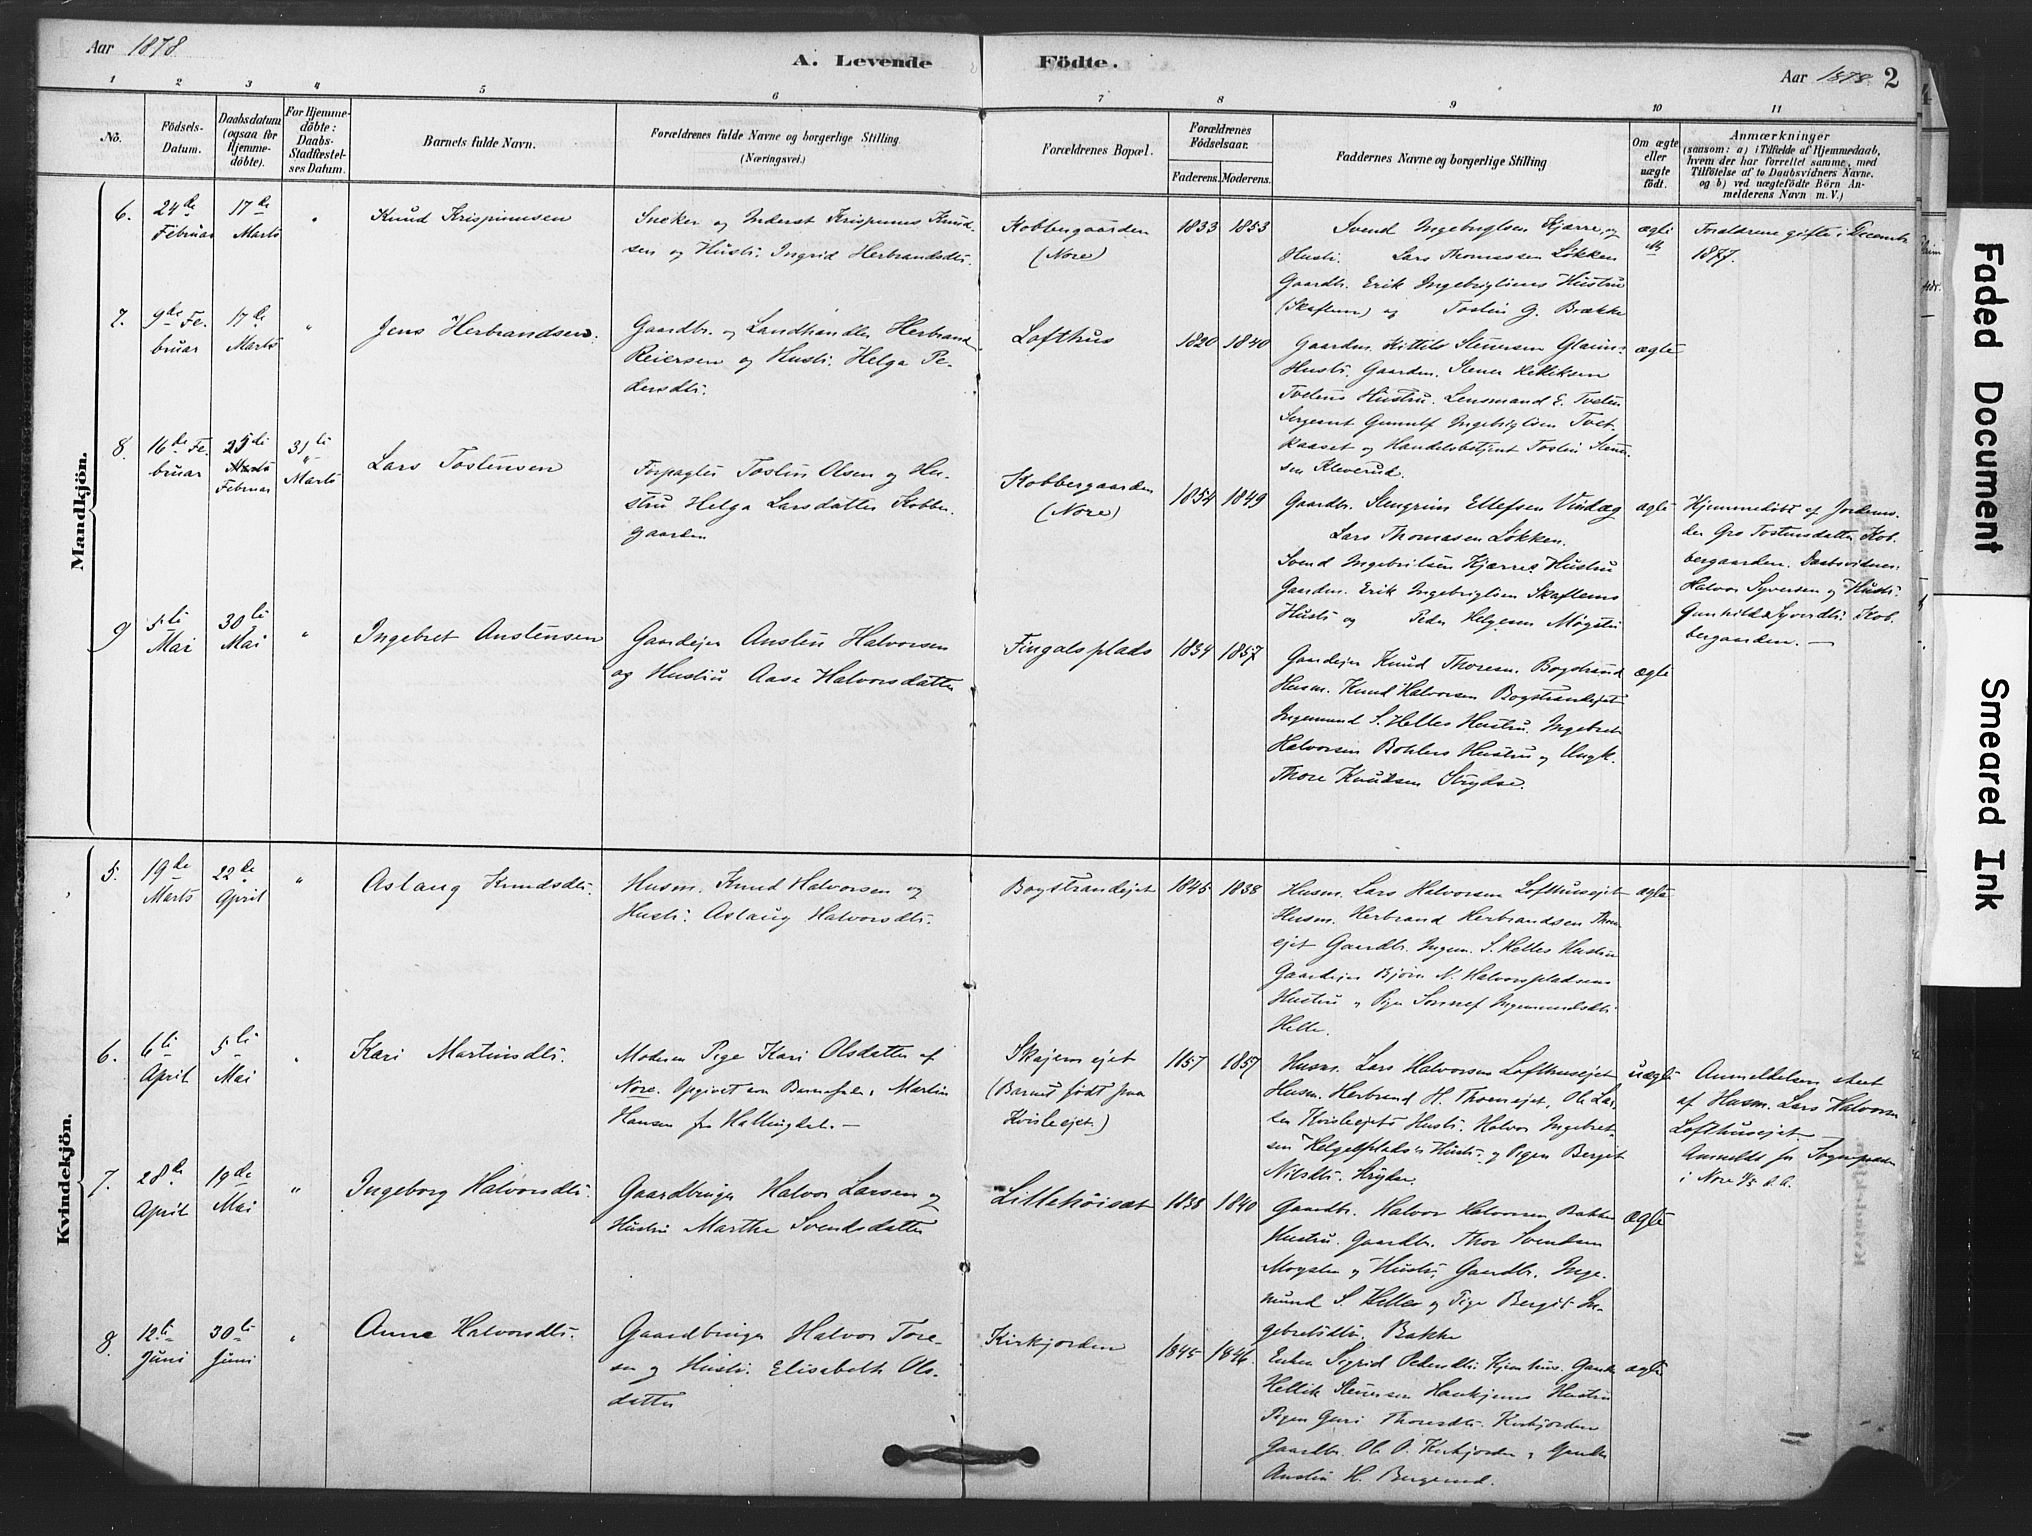 Aar 1878
A. Levende
Födte.
Aar 1878.
2
1 2 3 4 5 6 7 8 9 10 11
No.
Födsels-
Datum.
Daabsdatum
(ogsaa for
Hjemme-
döbte).
For Hjemme-
döbte:
Daabs-
Stadfæstel-
ses Datum.
Barnets fulde Navn.
Forældrenes fulde Navne og borgerlige Stilling
(Næringsvei.)
Forældrenes Bopæl.
Forældrenes
Födselsaar.
Faderens. Moderens.
Faddernes Navne og borgerlige Stilling
Om ægte
eller
uægte
födt.
Anmærkninger
(saasom: a) i Tilfælde af Hjemmedaab,
hvem der har forrettet samme, med
Tilföielse af to Daabsvidners Navne.
og b) ved uægtefödte Börn An-
melderens Navn m. V.)
Mandkjön.
6.
24de
Februar
17de
Marts
"
Knud Krispinusen
Sneker og Inderst Krispinus Knud-
sen og Hustr. Ingrid Herbrandsdtr.
Kobbergaarden
(Nore)
1833 1853
Svend Ingebrigtsen Kjærre, og
Hustr. Lars Thomassen Løkken
Gaardbr. Erik Ingebrigtsens Hustru
(Skaftem) og Tosten G. Brække
ægte
Forældrene gifte i Decembr
1877.
7.
9de Fe-
bruar
17de
Marts
"
Jens Herbrandsen.
Gaardbr. og Landhandler Herbrand
Reiersen og Hustr. Helga Pe-
dersdtr.
Lofthus
1820 1840
Gaardm. Kittils Steversen Glaims
Hustr. Gaardm. Stener Helliksen
Tvetens Hustru. Lensmand E. Tveten
Sergeant Gunulf Ingebrigtsen Tvet-
kaaset og Handelsbetjent Tosten Sten-
sen Kleverud.
ægte
8.
16de Fe-
bruar
25de
Marts
Februar
31te
Marts
Lars Tostensen
Forpagter Tosten Olsen og Hu-
stru Helga Larsdatter Kobber-
gaarden
Kobbergaarden
(Nore)
1854 1849
Gaardbr. Stengrim Ellefsen Vindeg
Lars Thomasen Løkken.
Svend Ingebrigtsen Kjærres Hustru
Gaardm. Erik Ingebrigtsen Skaftems
Hustr og Peder Helgesen Møgster
ægte
Hjemmedøbt af Jordemo-
der Gro Tostensdatter Kob-
bergaarden. Daabsvidner:
Halvor Syversen og Hustr.
Gunhild Syverdtr. Kob-
bergaarden. —
9
5te
Mai
30te
Mai
"
Ingebret Anstensen
Gaardejer Ansten Halvorsen
og Hustru Aase Halvorsdatter
Fingalsplads
1834 1857
Gaardejer Knud Thoresen. Bogstrand
Husm. Knud Halvorsen Bogstrandejet
Ingemund S. Helles Hustru. Ingebret
Halvorsen Bohlers Hustru og Ungk.
Thore Knudsen Strydse.
ægte
Kvindekjön.
5.
19de
Marts
22de
April
"
Aslaug Knudsdtr.
Husm. Knud Halvorsen og
Hustr. Aslaug Halvorsdtr.
Bogstrandejet
1845 1838
Husm. Lars Halvorsen Lofthusejet
Husm. Herbrand Herbrandsen Thoen-
ejet Gaardbr. Ingem. S. Helles Hustru
Gaardejer Bjørn N. Halvorspladsens
Hustru og Pige Sønnef Ingemundsdtr.
Helle.
ægte
6.
6te
April
5te
Mai
"
Kari Martinsdtr.
Moderen Pige Kari Olsdatter af
Nore. Opgivet som Barnefader Martin
Hansen fra Hallingdal. —
Skajemejet
(Barnet født paa
Kvisleejet)
1857 1857
Husm. Lars Halvorsen Lofthusejet
Husm. Herbrand H. Thoenejet, Ole Lar-
sen Kvisleejets Hustr. Halvor Ingebret-
sen Helgesplads's Hustr. og Pigen Berget
Nilsdtr. Stryken.
uægte
Anmeldelsen skeet
af Husm. Lars Halvorsen
Lofthusejet.
Anmeldt for Sognepræsten
i Nore
7.
28de
April
19de
Mai
"
Ingeborg Halvorsdtr.
Gaardbruger Halvor Larsen og
Hustru Marthe Svendsdatter
Littehöisæt
1838 1840
Gaardbr. Halvor Halvorsen Bakke
Hustru. Gaardbr. Thor Svendsen
Mogsten og Hustr. Gaardbr. Inge-
mund S. Helles og Pige Bergit In-
gebretsdtr. Bakke
ægte
8.
12te
Juni
30te
Juni
"
Anne Halvorsdtr.
Gaardbruger Halvor Tore-
sen og Hustr. Elisabeth Ols-
datter
Kirkjorden
1845 1846.
Enken Sigrid Pedersdtr. Kjemhus. Gaardm.
Hellik Stenersen Haukjems Hustru
Pigen Guri Thoresdtr. Kirkjorden
Gaardbr. Ole O. Kirkjorden og Gaardbr.
Ansten H. Bergerud.
ægte
Faded Document
Smeared Ink